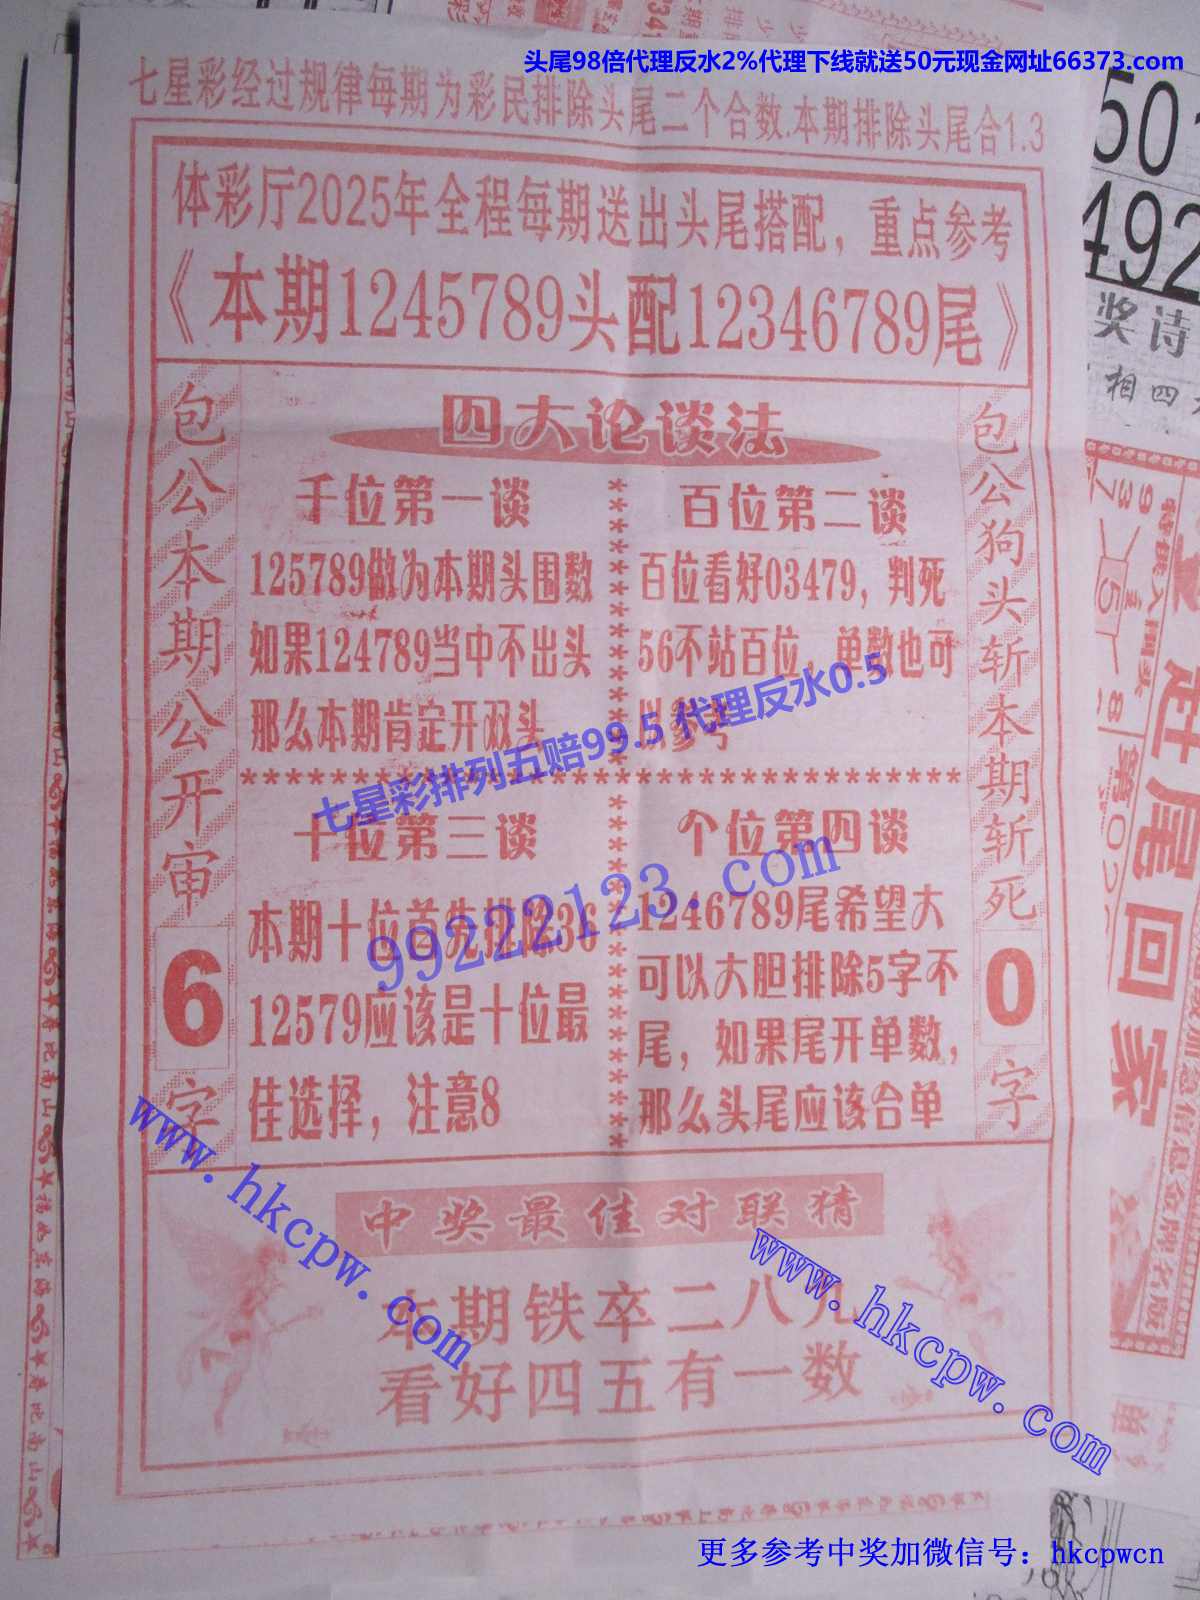 头尾98倍代理反水2%代理下线就送50元现金网址66373.com
七星彩经过规律每期为彩民排除头尾二个合数.本期排除头尾合1.3
体彩厅2025年全程每期送出头尾搭配，重点参考
《本期1245789头配12346789尾》
包公本期公开审
6
字
四大论谈法
千位第一谈
125789做为本期头围数
如果124789当中不出头
那么本期肯定开双头
百位第二谈
百位看好03479，判死
56不站百位，单数也可
以参考
七星彩排列五赔99.5 代理反水0.5
十位第三谈
本期十位首先排除36
12579应该是十位最
佳选择，注意8
个位第四谈
1246789尾希望大
可以大胆排除5字不
尾，如果尾开单数，
那么头尾应该合单
99222123.com
包公狗头斩本期斩死
0
字
中奖最佳对联猜
本期铁卒二八九
看好四五有一数
www.hkcpw.com
www.hkcpw.com
50
492
奖诗
相四
回家
更多参考中奖加微信号：hkcpwcn